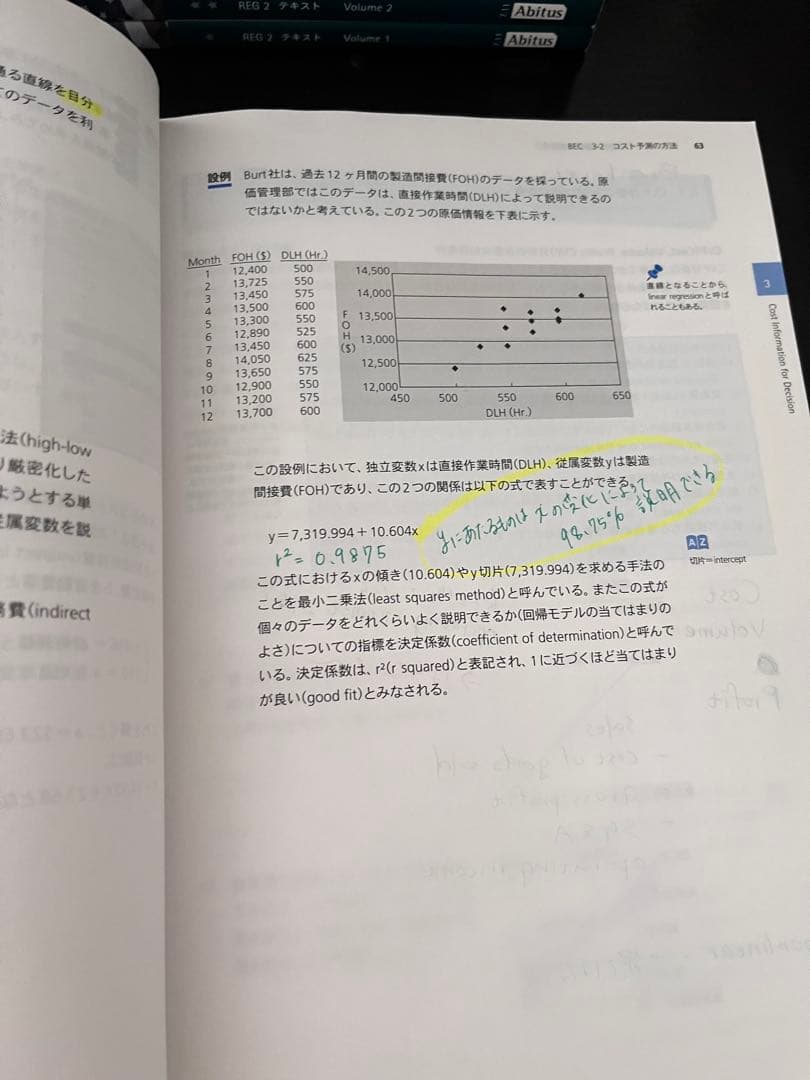 REG 2 テキスト Volume 2 Abitus
REG 2 テキスト Volume 1 Abitus
る直線を自分
このデータを利
法(high-low
り厳密化した
ようとする単
従属変数を説
費(indirect
BEC 3-2 コスト予測の方法 63
設例 Burt社は、過去12ヶ月間の製造間接費(FOH)のデータを採っている。原
価管理部ではこのデータは、直接作業時間(DLH)によって説明できるの
ではないかと考えている。この2つの原価情報を下表に示す。
Month FOH ($) DLH (Hr.)
1 12,400 500
2 13,725 550
3 13,450 575
4 13,500 600
5 13,300 550
6 12,890 525
7 13,450 600
8 14,050 625
9 13,650 575
10 12,900 550
11 13,200 575
12 13,700 600
FOH ($)
14,500
14,000
13,500
13,000
12,500
12,000
450 500 550 600 650
DLH (Hr.)
直線となることから、
linear regressionと呼ば
れることもある。
3
Cost Information for Decision
この設例において、独立変数xは直接作業時間(DLH)、従属変数yは製造
間接費(FOH)であり、この2つの関係は以下の式で表すことができる。
y＝7,319.994＋10.604x
r²= 0.9875
yにあたるものは xの変化によって
98.75% 説明できる
AZ
切片＝intercept
この式におけるxの傾き(10.604)やy切片(7,319.994)を求める手法の
ことを最小二乗法(least squares method)と呼んでいる。またこの式が
個々のデータをどれくらいよく説明できるか(回帰モデルの当てはまりの
よさ)についての指標を決定係数(coefficient of determination)と呼んで
いる。決定係数は、r²(r squared)と表記され、1に近づくほど当てはまり
が良い(good fit)とみなされる。